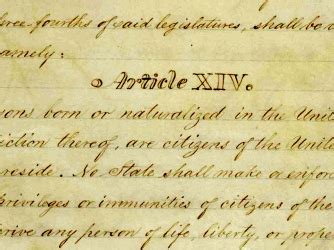 three-fourths of said legislatures, shall be
namely:
Article XIV.
sons born or naturalized in the Unit
iction thereof, are citizens of the Unite
reside. No State shall make or enforc
privileges or immunities of citizens of the
rive any person of life, liberty, or prope